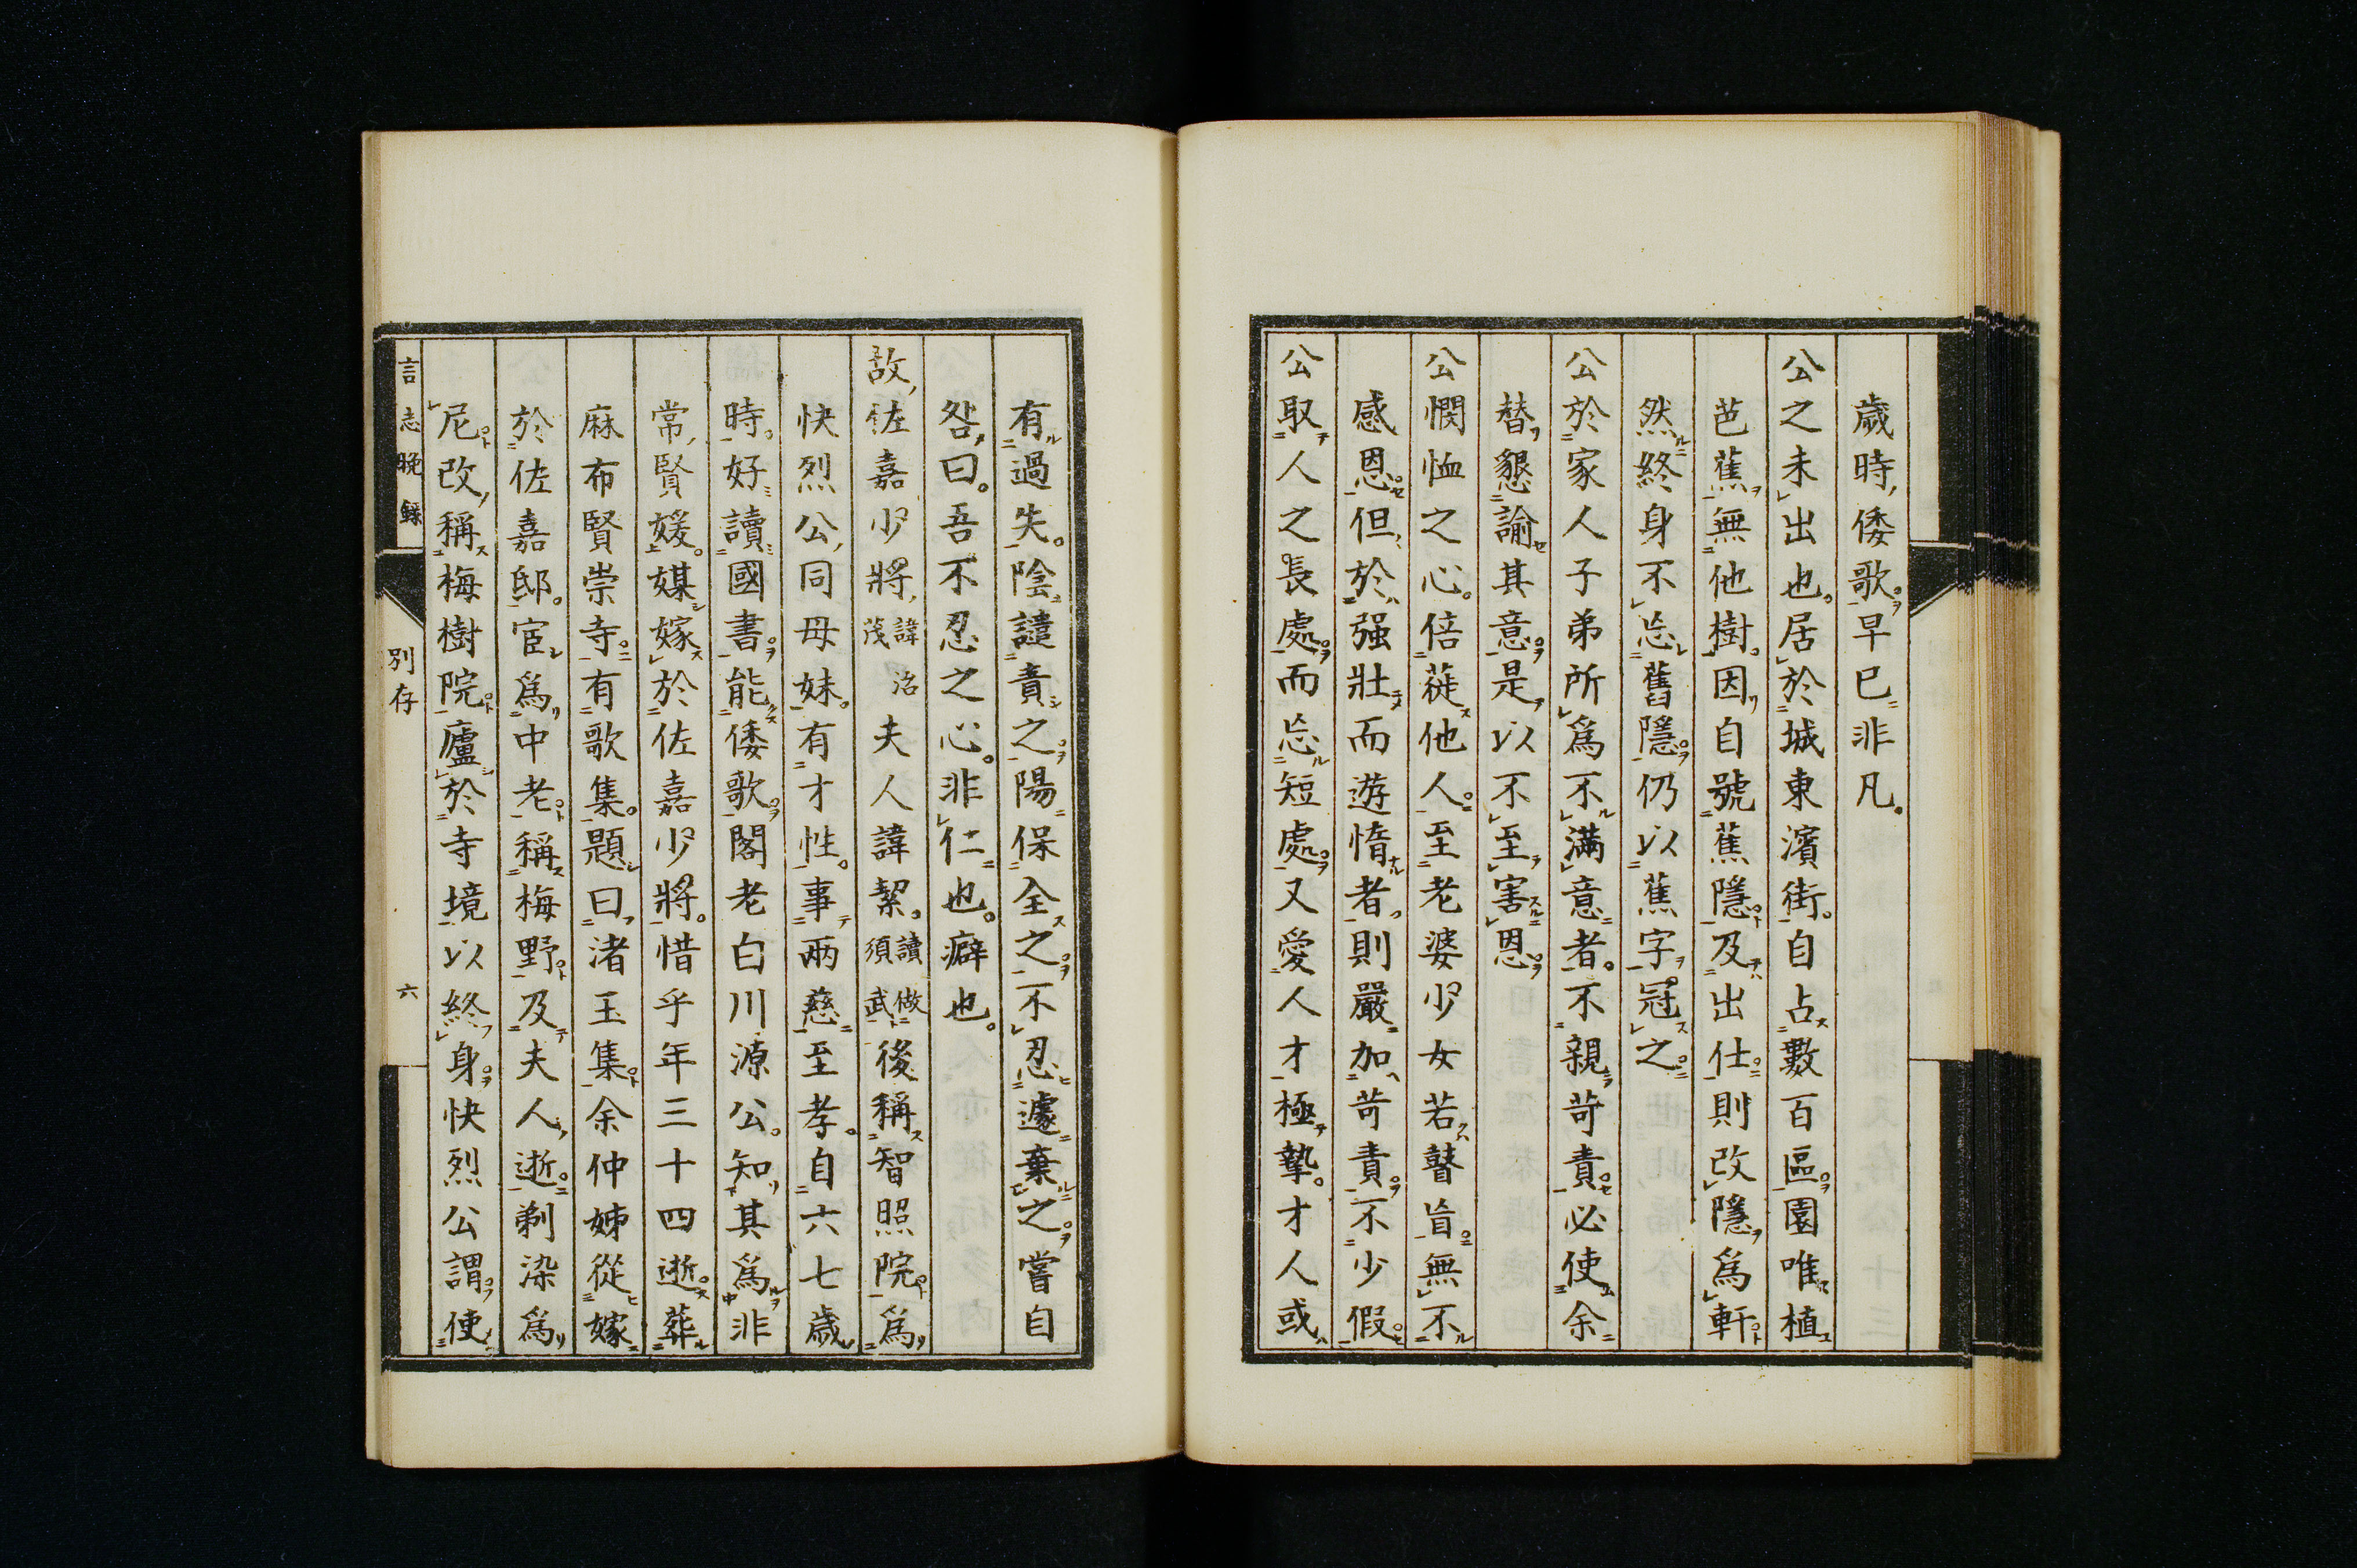 歲時倭歌早已非凡。
公之未出也。居於城東濱街。自占數百區園唯植
芭蕉無他樹。因自號蕉隱及出仕則改隱爲軒
然終身不忘舊隱仍以蕉字冠之
公於家人子弟所爲不滿意者。不親苛責必使余
替懇諭其意是以不至害恩
公憫恤之心。倍蓰他人至老婆少女若瞽盲無不
感恩但於强壯而遊惰者則嚴加苛責不少假
公取人之長處而忘短處又愛人才極摯。才人或
有過失。陰譴責之陽保全之不忍遽棄之嘗自
咎曰。吾不忍之心。非仁也。癖也。
故佐嘉少將諱治茂夫人諱絜。讀須做武後稱智照院爲
快烈公同母妹。有才性。事兩慈至孝。自六七歲
時。好讀國書能倭歌閣老白川源公。知其爲非
常賢媛。媒嫁於佐嘉少將。惜乎年三十四逝葬
麻布賢崇寺有歌集。題曰渚玉集余仲姊從嫁
於佐嘉邸。宦爲中老稱梅野及夫人逝剃染爲
尼改稱梅樹院廬於寺境以終身快烈公謂使
言志晚錄
別存
六